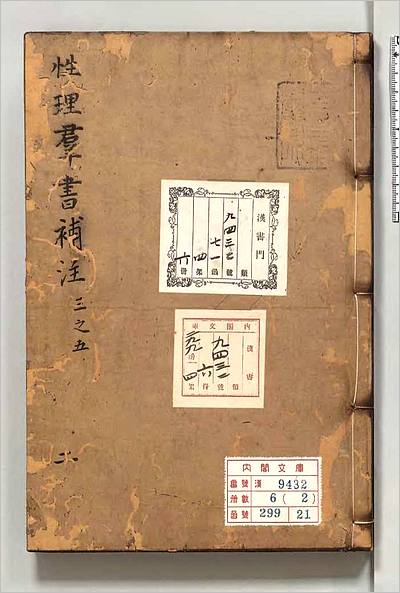 性理羣書補注 三之五
二
漢書門
九四三二
七一
四
六
類
號
函
架
冊
內閣文庫
漢書
九四三二
六
四
類
號
冊
架
內閣文庫
番號 漢 9432
冊數 6 (2)
函號 299 21